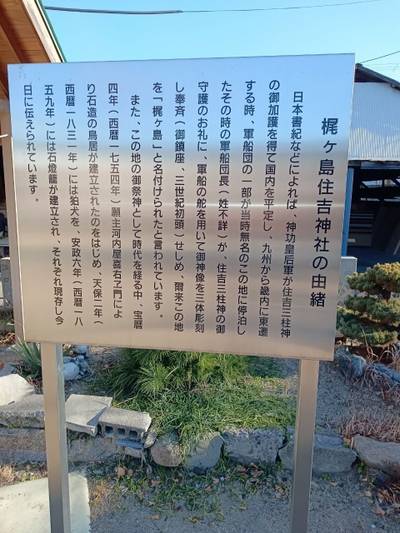 梶ヶ島住吉神社の由緒
日本書紀などによれば、神功皇后軍が住吉三柱神
の御加護を得て国内を平定し、九州から畿内に東遷
する時、軍船団の一部が当時無名のこの地に停泊し
たその時の軍船団長（姓不詳）が、住吉三柱神の御
守護のお礼に、軍船の舵を用いて御神像を三体彫刻
し奉斉（御鎮座、三世紀初頭）せしめ、爾来この地
を「梶ヶ島」と名付けられたと言われています。
また、この地の御祭神として時代を経る中、宝暦
四年（西暦一七五四年）願主河内屋喜右ヱ門によ
り石造の鳥居が建立されたのをはじめ、天保二年（
西暦一八三一年）には狛犬を、安政六年（西暦一八
五九年）には石燈籠が建立され、それぞれ現存し今
日に伝えられています。